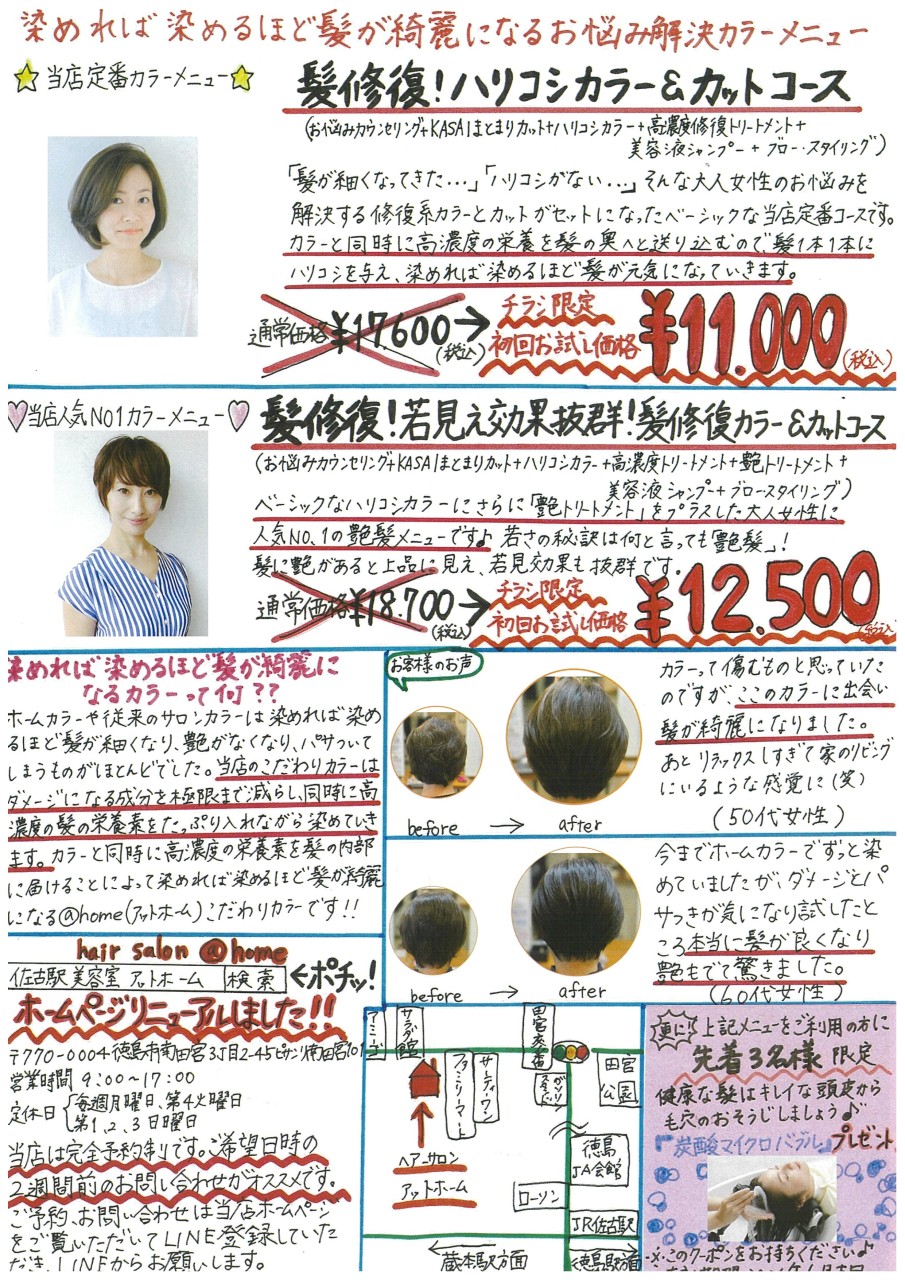 染めれば染めるほど髪が綺麗になるお悩み解決カラーメニュー
当店定番カラーメニュー
髪修復!ハリコシカラー&カットコース
(お悩みカウンセリング+KASAIまとまりカット+ハリコシカラー+高濃度修復トリートメント+
美容液シャンプー+ブロー・スタイリング)
「髪が細くなってきた…」「ハリコシがない…」そんな大人女性のお悩みを
解決する修復系カラーとカットがセットになったベーシックな当店定番コースです。
カラーと同時に高濃度の栄養を髪の奥へと送り込むので、髪1本1本に
ハリコシを与え、染めれば染めるほど髪が元気になっていきます。
通常価格¥17600(税込)→
チラシ限定
初回お試し価格
¥11.000(税込)
当店人気NO1カラーメニュー
髪修復!若見え効果抜群!髪修復カラー&カットコース
(お悩みカウンセリング+KASAIまとまりカット+ハリコシカラー+高濃度トリートメント+艶トリートメント+
美容液シャンプー+ブロースタイリング)
ベーシックなハリコシカラーにさらに「艶トリートメント」をプラスした大人女性に
人気NO,1の艶髪メニューです♪若さの秘訣は何と言っても「艶髪」!
髪に艶があると上品に見え、若見効果も抜群です。
通常価格¥18.700(税込)→
チラシ限定
初回お試し価格
¥12.500(税込)
染めれば染めるほど髪が綺麗に
なるカラーって何??
ホームカラーや従来のサロンカラーは染めれば染め
るほど髪が細くなり、艶がなくなり、パサついて
しまうものがほとんどでした。当店のこだわりカラーは
ダメージになる成分を極限まで減らし、同時に高
濃度の髪の栄養素をたっぷり入れながら染めていき
ます。カラーと同時に高濃度の栄養素を髪の内部
に届けることによって染めれば染めるほど髪が綺麗
になる@home(アットホーム)こだわりカラーです!!
お客様のお声
before → after
カラーって傷むものと思っていた
のですが、ここのカラーに出会い
髪が綺麗になりました。
あとリラックスしすぎて家のリビング
にいるような感覚に(笑)
(50代女性)
before → after
今までホームカラーでずっと染
めていましたが、ダメージとパ
サつきが気になり試したと
ころ本当に髪が良くなり
艶もでて驚きました。
(60代女性)
hair salon @home
佐古駅 美容室 アットホーム 検索 ←ポチッ!
ホームページリニューアルしました!!
〒770-0004徳島市南田宮3丁目2-45ピサンリ南田宮101
営業時間 9:00~17:00
定休日 毎週月曜日、第4火曜日
第1、2、3日曜日
当店は完全予約制です。ご希望日時の
2週間前のお問い合わせがオススメです。
ご予約、お問い合わせは当店ホームページ
をご覧いただいてLINE登録していた
だき、LINEからお願いします。
アミーゴ
サラダ館
ファミリーマート
サーティーワン
田宮交番
田宮公園
徳島JA会館
ローソン
JR佐古駅
ヘアーサロン
アットホーム
蔵本駅方面
徳島駅方面
更に!
上記メニューをご利用の方に
先着3名様限定
健康な髪はキレイな頭皮から
毛穴のおそうじしましょう♪
『炭酸マイクロバブル』プレゼント
※このクーポンをお持ちください♪